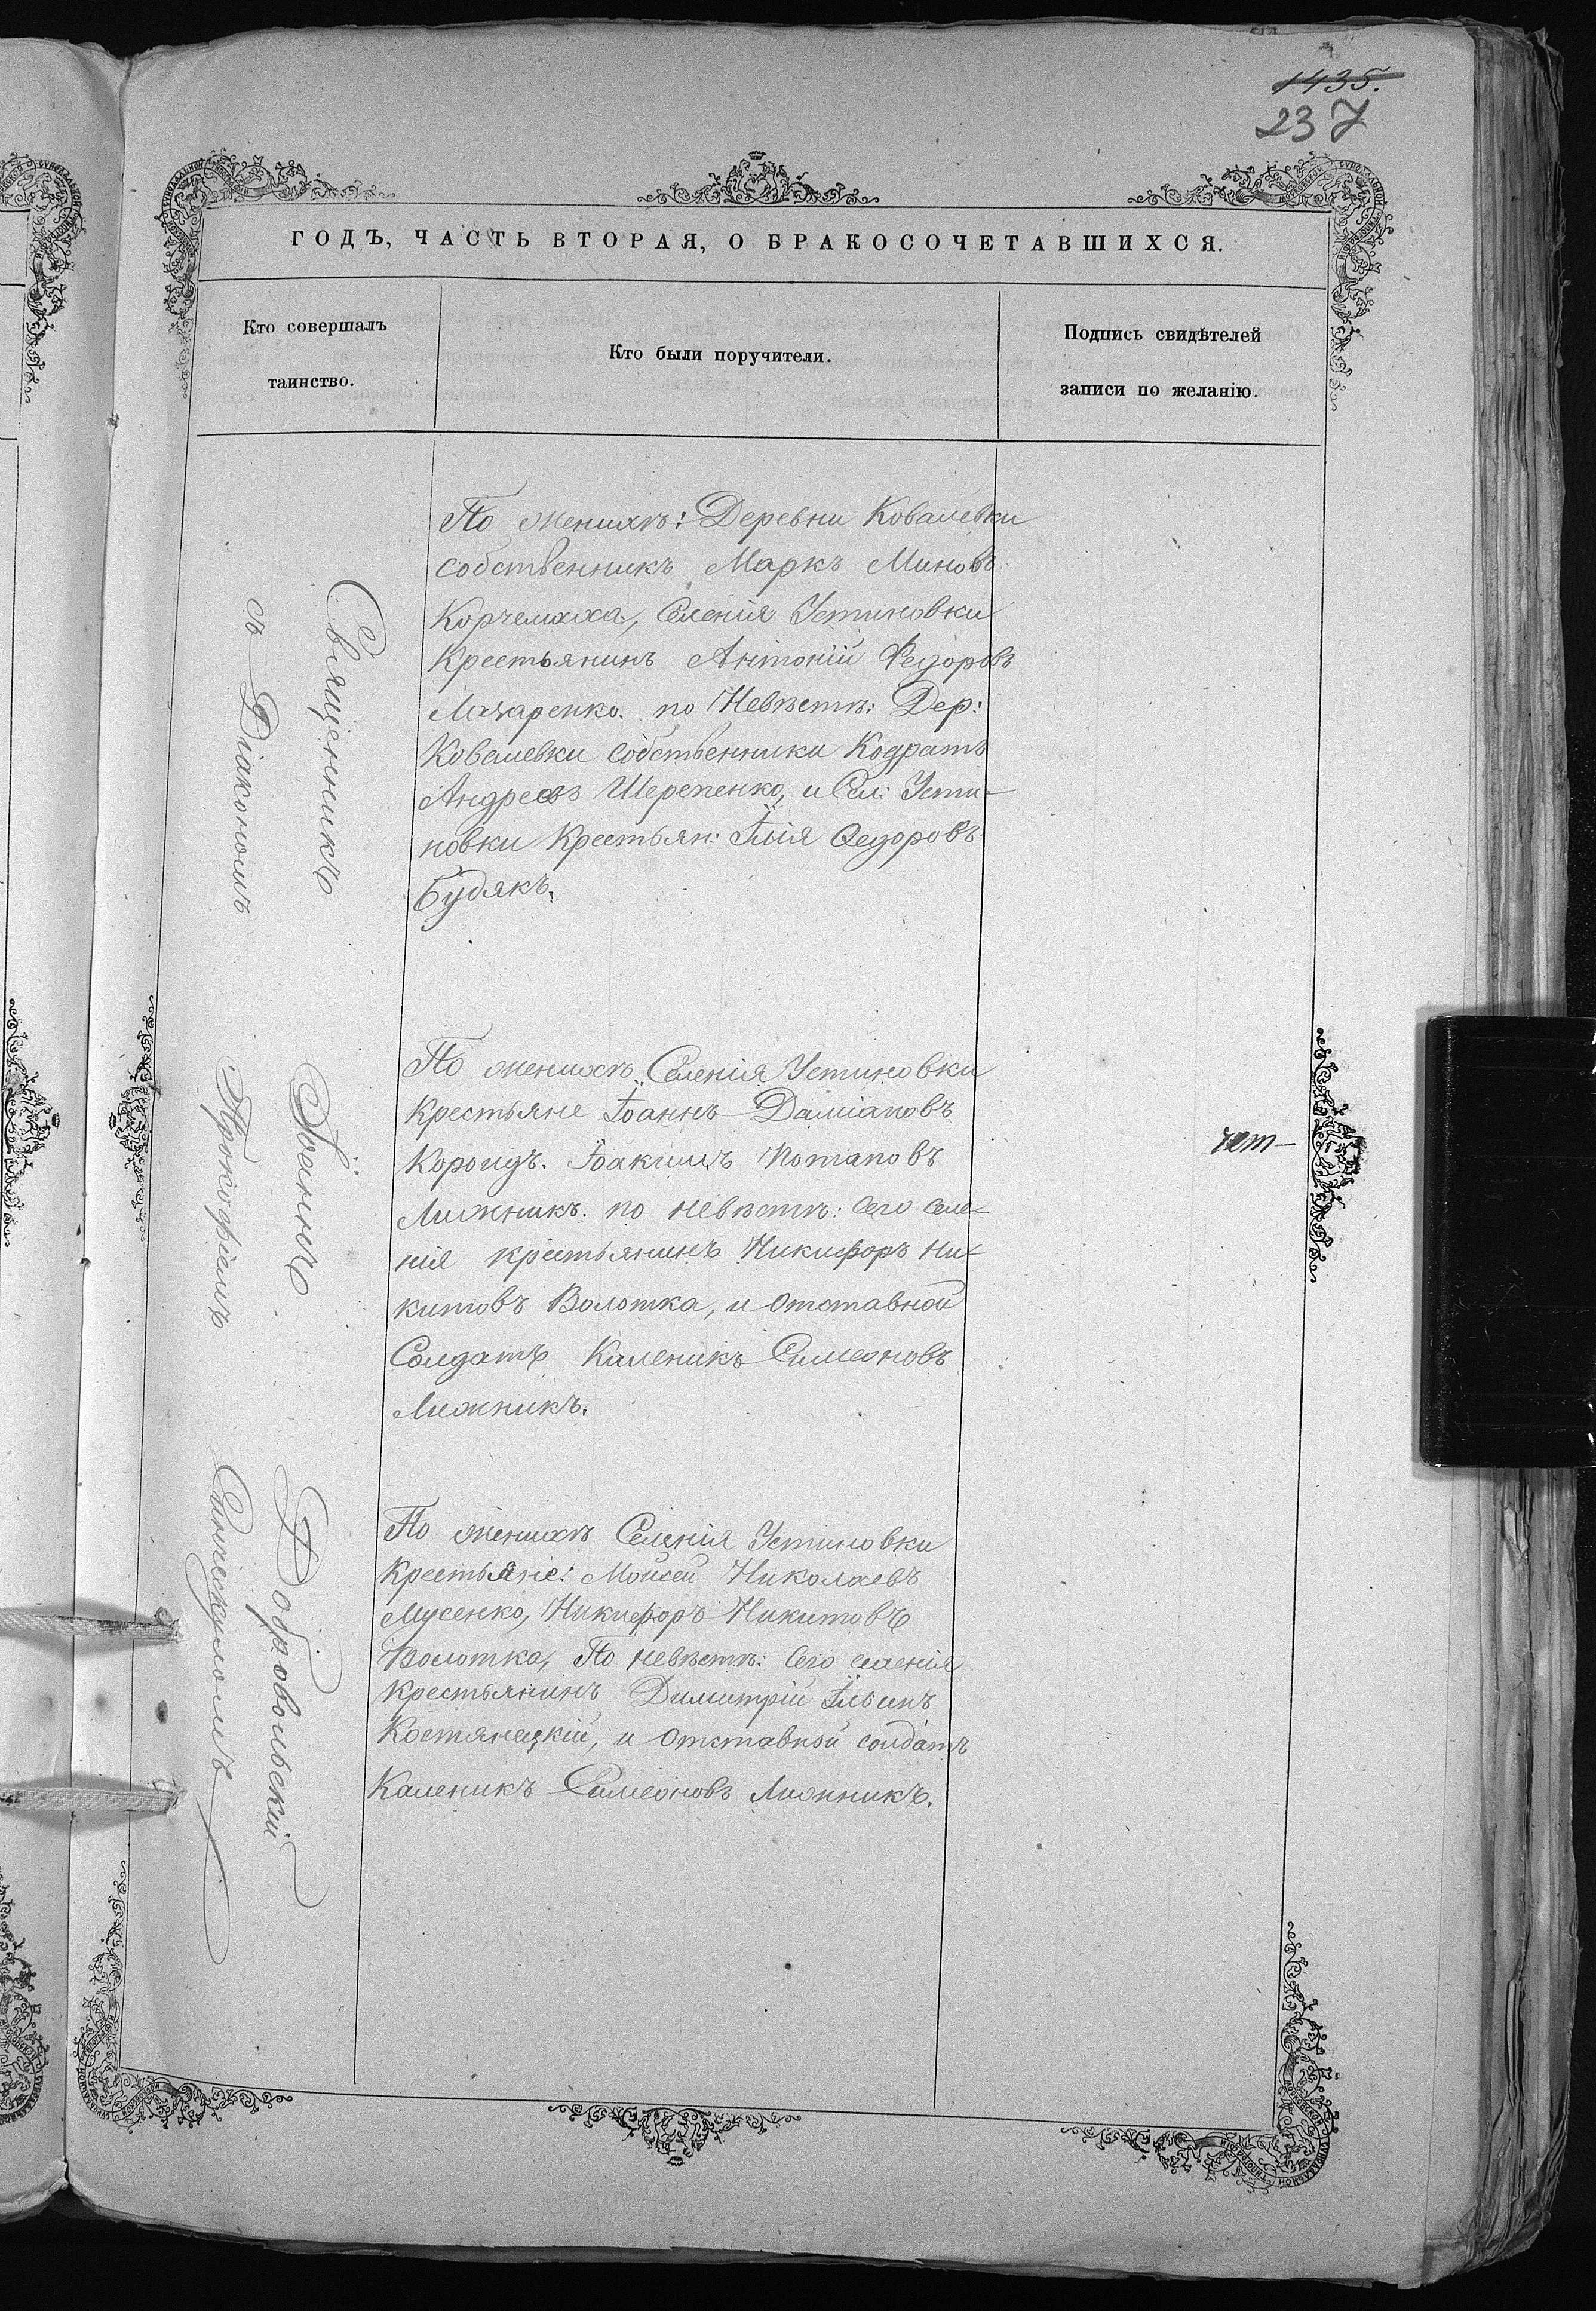 1435.
237
ГОДЪ, ЧАСТЬ ВТОРАЯ, О БРАКОСОЧЕТАВШИХСЯ.
Кто совершалъ
таинство.
Кто были поручители.
Подпись свидѣтелей
записи по желанію.
Священникъ Іоаннъ Добровольскій
съ Діакономъ Прокофіемъ
По женихѣ: Деревни Ковалевки
собственникъ Маркъ Миновъ
Корчемаха, Селенія Устиновки
Крестьянинъ Антоній Федоровъ
по Невѣстѣ: Дер:
Ковалевки собственники Кодратъ
Андреевъ Шерепенко, и Сел: Усти-
новки Крестьян: Илія Ѳедоровъ
Будякъ.
По женихѣ Селенія Устиновки
Крестьяне Іоаннъ Даміановъ
Іоакимъ Потаповъ
Лижникъ. по невѣстѣ: Сего селе-
нія крестьянинъ Никифоръ Ни-
китовъ Волотка, и Отставной
Солдатъ Каленикъ Симеоновъ
Лижникъ.
По женихѣ Селенія Устиновки
Крестьяне: Моисей Николаевъ
Мусенко, Никифоръ Никитовъ
Волотка, По невѣстѣ: Сего селенія
Крестьянинъ Димитрій Ильинъ
Костянецкій, и Отставной солдатъ
Каленикъ Симеоновъ Лижникъ.